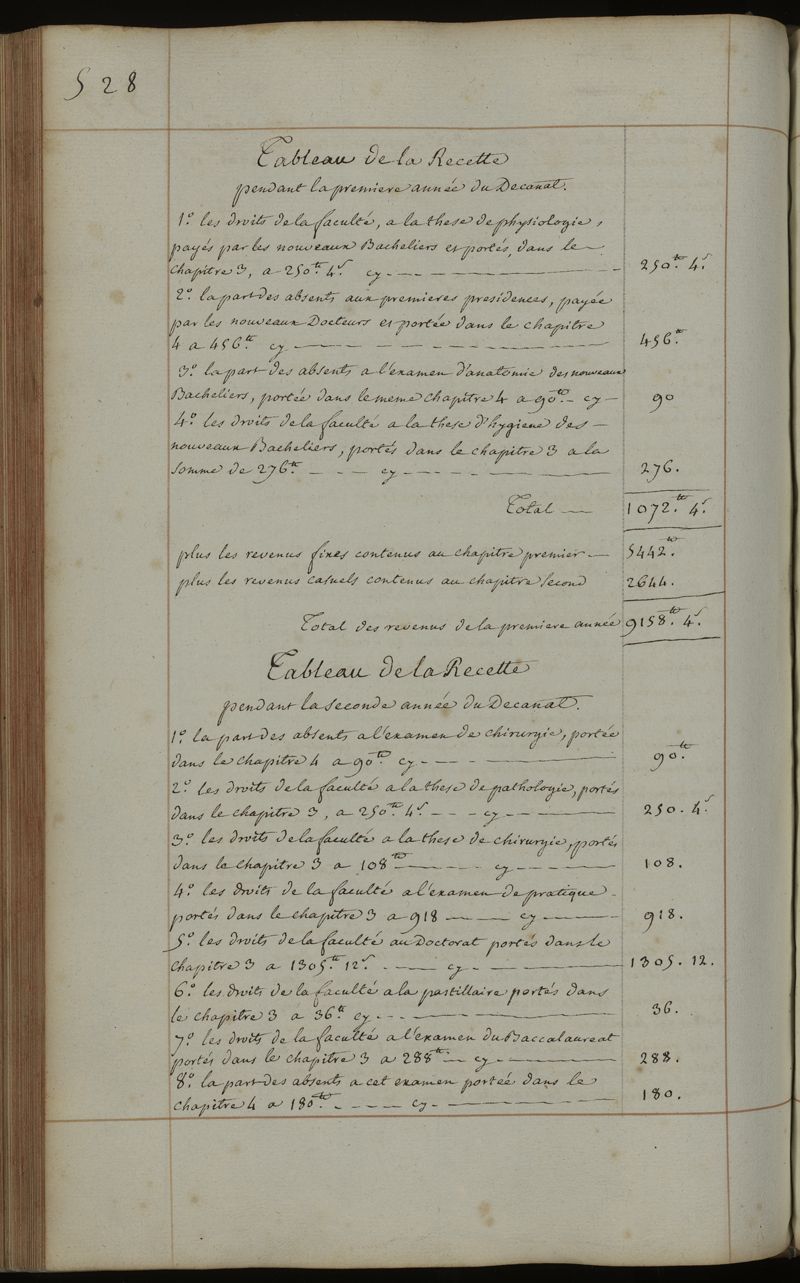 528
Tableau de la Recette
pendant la premiere année du Decanat.
1.º les droits de la faculté, a la these de physiologie,
payés par les nouveaux Bacheliers et portés, dans le
chapitre 3, a 250.tt 4.s cy - - - - 250.tt 4.s
2.º la part des absents aux premieres presidences, payée
par les nouveaux Docteurs et portée dans le chapitre
4 a 456.tt cy - - - - 456.tt
3.º la part des absents a l'examen d'anatomie des nouveaux
Bacheliers, portée dans le meme chapitre 4 a 90.tt - cy - 90
4.º les droits de la faculté a la these d'hygiene des -
nouveaux Bacheliers, portés dans le chapitre 3 a la
somme de 276.tt - - - cy - - - - 276.
Total - 1072.tt 4.s
plus les revenus fixes contenus au chapitre premier - 5442.tt
plus les revenus casuels contenus au chapitre second 2644.
Total des revenus de la premiere année 9158.tt 4.s
Tableau de la Recette
pendant la seconde année du Decanat.
1.º la part des absents a l'examen de chirurgie, portée
dans le chapitre 4 a 90.tt cy - - - - 90.tt
2.º les droits de la faculté a la these de pathologie, portés
dans le chapitre 3, a 250.tt 4.s - - - cy - - - 250. 4.s
3.º les droits de la faculté a la these de chirurgie, portés
dans le chapitre 3 a 108.tt - - - cy - - - 108.
4.º les droits de la faculté a l'examen de pratique -
portés dans le chapitre 3 a 918 - - cy - - 918.
5.º les droits de la faculté au Doctorat portés dans le
chapitre 3 a 1305.tt 12.s - - - cy - - - 1305. 12.
6.º les droits de la faculté a la pastillaire portés dans
le chapitre 3 a 36.tt cy - - - - 36.
7.º les droits de la faculté a l'examen du Baccalaureat
portés dans le chapitre 3 a 288.tt - cy - - - 288.
8.º la part des absents a cet examen portée dans le
chapitre 4 a 180.tt - - - - cy - - - 180.